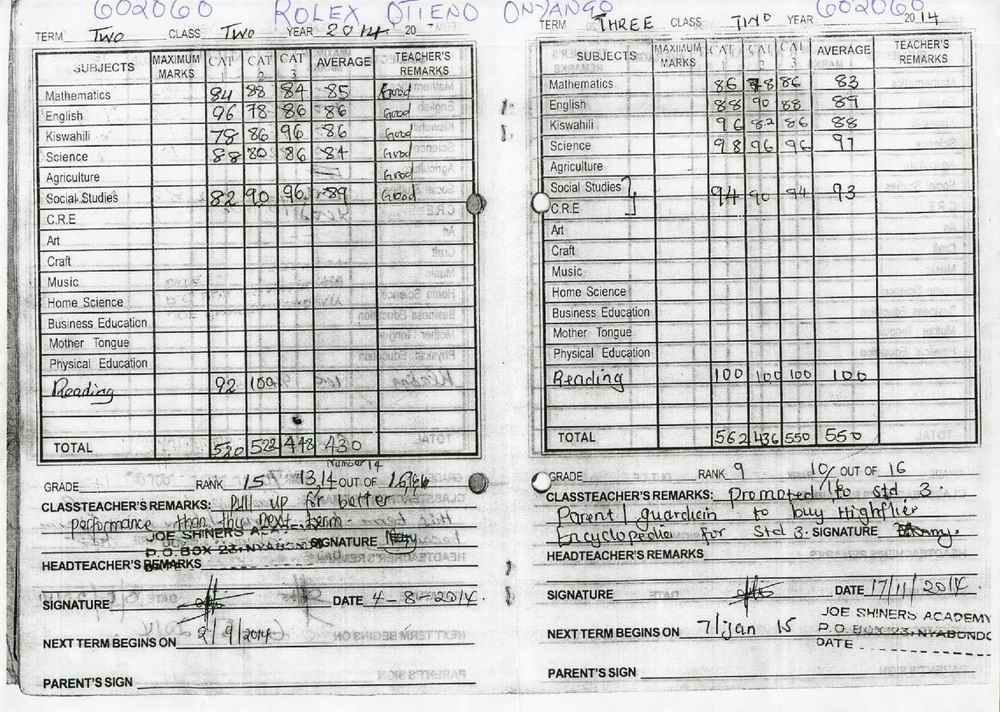 602060 ROLEX OTIENO ONYANGO 602060
TERM Two CLASS Two YEAR 2014 20
SUBJECTS MAXIMUM MARKS CAT 1 CAT 2 CAT 3 AVERAGE TEACHER'S REMARKS
Mathematics 84 88 84 85 Good
English 96 78 86 86 Good
Kiswahili 78 86 96 86 Good
Science 88 80 86 84 Good
Agriculture Good
Social Studies 82 90 96 89 Good
C.R.E
Art
Craft
Music
Home Science
Business Education
Mother Tongue
Physical Education
Reading 92 100
TOTAL 520 522 448 430
Number 14
GRADE RANK 15 13,14 OUT OF 16
CLASSTEACHER'S REMARKS: Pull up for better
performance than next term
JOE SHINERS ACADEMY
P.O. BOX 23, NYABONDO
SIGNATURE
HEADTEACHER'S REMARKS
SIGNATURE DATE 4-8-2014
NEXT TERM BEGINS ON 2/9/2014
PARENT'S SIGN
TERM THREE CLASS TWO YEAR 2014
SUBJECTS MAXIMUM MARKS CAT 1 CAT 2 CAT 3 AVERAGE TEACHER'S REMARKS
Mathematics 86 78 86 83
English 88 90 88 89
Kiswahili 96 82 86 88
Science 98 96 96 97
Agriculture
Social Studies
C.R.E 94 90 94 93
Art
Craft
Music
Home Science
Business Education
Mother Tongue
Physical Education
Reading 100 100 100 100
TOTAL 562 436 550 550
GRADE RANK 9 10/16 OUT OF 16
CLASSTEACHER'S REMARKS: Promoted to std 3.
Parent/guardian to buy Highflier
Encyclopedia for Std 3. SIGNATURE
HEADTEACHER'S REMARKS
SIGNATURE DATE 17/11/2014
JOE SHINERS ACADEMY
NEXT TERM BEGINS ON 7/jan 15 P.O. BOX 23, NYABONDO
DATE
PARENT'S SIGN